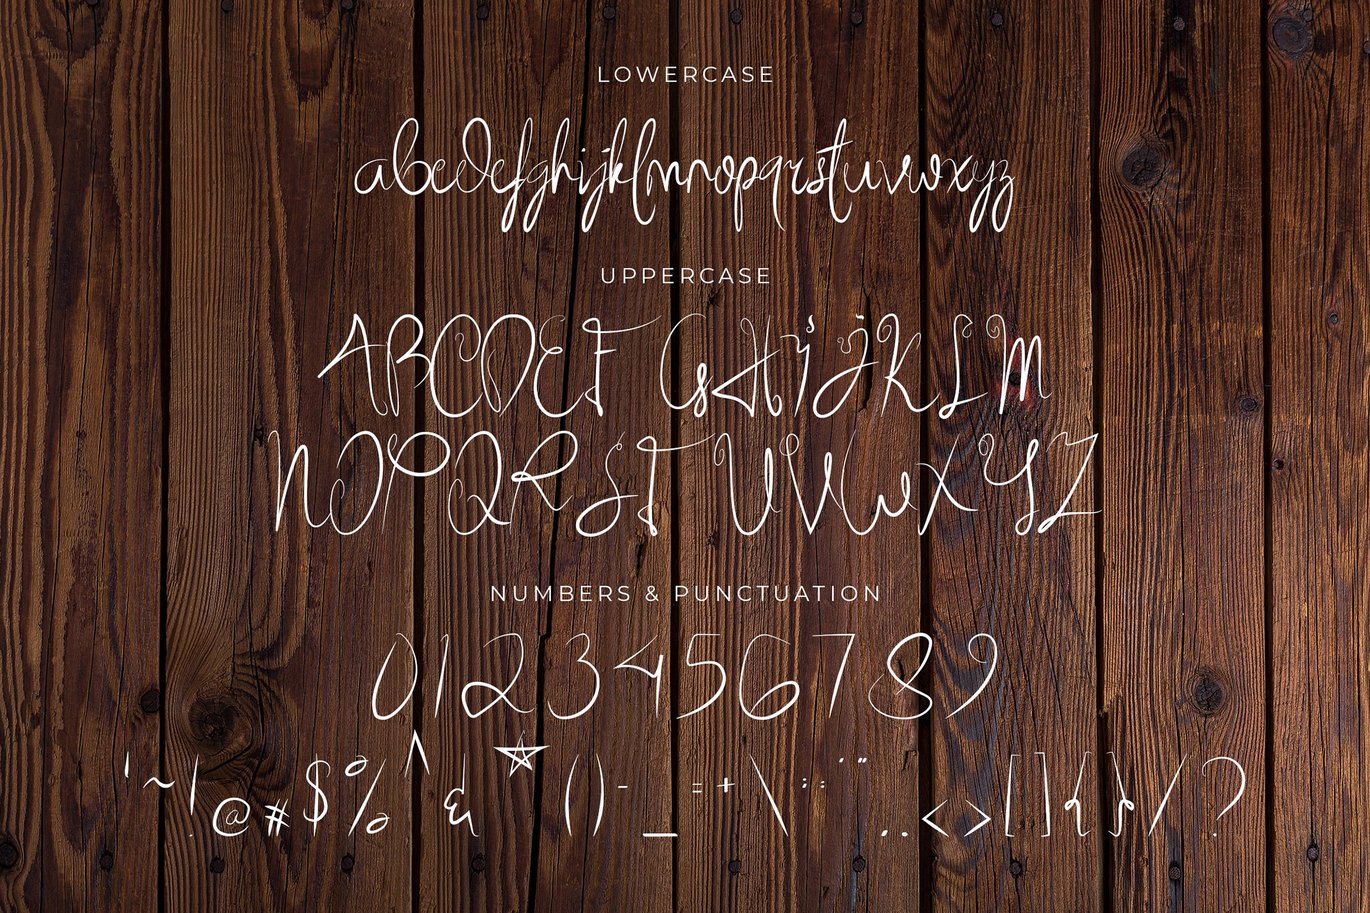 LOWERCASE
abcdefghijklmnopqrstuvwxyz
UPPERCASE
ABCDEFGHIJKLM
NOPQRSTUVWXYZ
NUMBERS & PUNCTUATION
0123456789
'~!@#$%^&*()-_=+\:;'"..<>[]{}/?